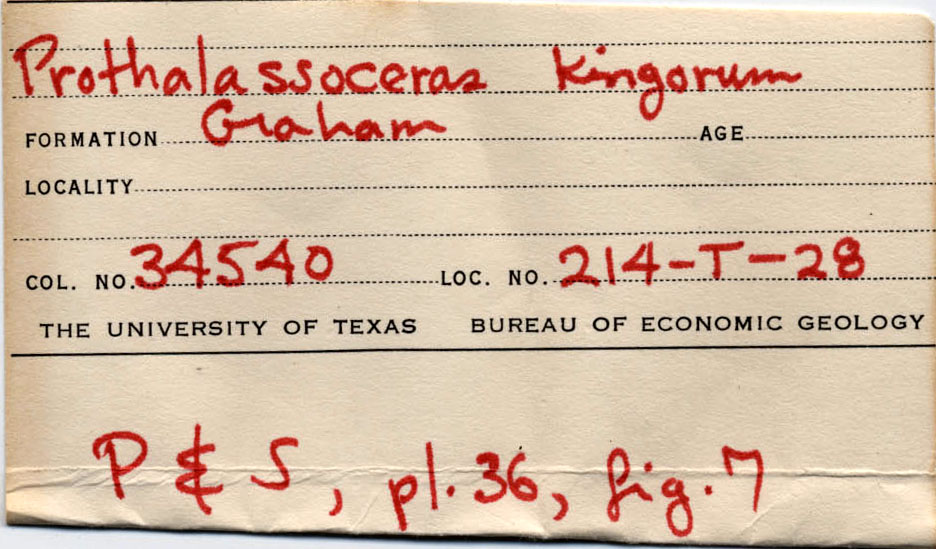 Prothalassoceras Kingorum
FORMATION Graham AGE
LOCALITY
COL. NO. 34540 LOC. NO. 214-T-28
THE UNIVERSITY OF TEXAS BUREAU OF ECONOMIC GEOLOGY
P & S, pl. 36, fig. 7